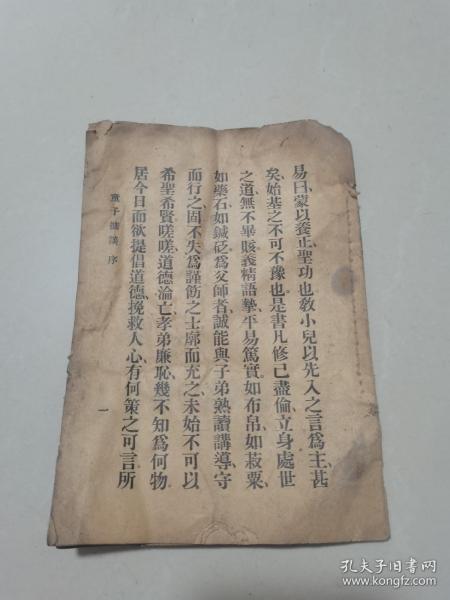 易曰、蒙以養正聖功也、敎小兒以先入之言爲主、甚
矣、始基之不可不豫也、是書凡修己盡倫、立身處世
之道、無不畢賅、義精語摯、平易篤實、如布帛、如菽粟、
如藥石、如鍼砭、爲父師者、誠能與子弟熟讀講導、守
而行之、固不失爲謹飭之士、廓而充之、未始不可以
希聖希賢、嗟嗟、道德淪亡、孝弟廉恥、幾不知爲何物、
居今日而欲提倡道德、挽救人心、有何策之可言、所
童子 談 序
一
孔夫子旧书网
www.kongfz.com